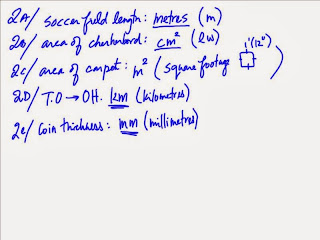 2A/ soccer field length: metres (m)
2B/ area of chessboard: cm² (lw)
2C/ area of carpet: m² (square footage 1'(12") )
2D/ T.O → OH. km (kilometres)
2e/ Coin thickness: mm (millimetres)